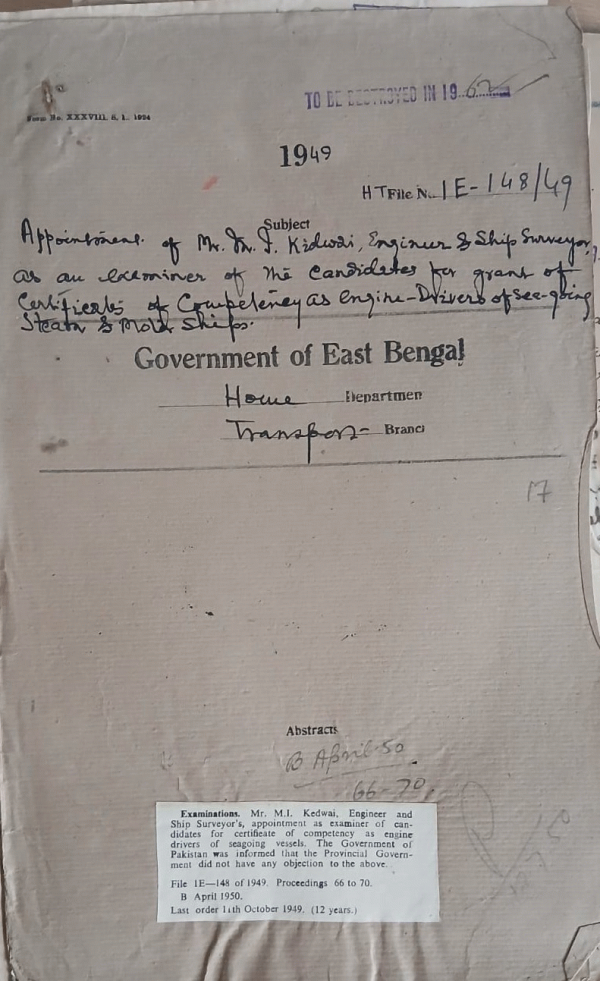 TO BE DESTROYED IN 1962
Form No. XXXVIII. S. L. 1934
1949
HT File No. 1E-148/49
Subject
Appointment of Mr. M. I. Kidwai, Engineer & Ship Surveyor,
as an examiner of the candidates for grant of
Certificates of Competency as Engine-Drivers of Sea-going
Steam & Motor Ships.
Government of East Bengal
Home Departmen
Transport Branc
17
Abstracts
B April 50
66-70
Examinations. Mr. M.I. Kedwai, Engineer and
Ship Surveyor's, appointment as examiner of can-
didates for certificate of competency as engine
drivers of seagoing vessels. The Government of
Pakistan was informed that the Provincial Govern-
ment did not have any objection to the above.
File 1E—148 of 1949. Proceedings 66 to 70.
B April 1950.
Last order 11th October 1949. (12 years.)